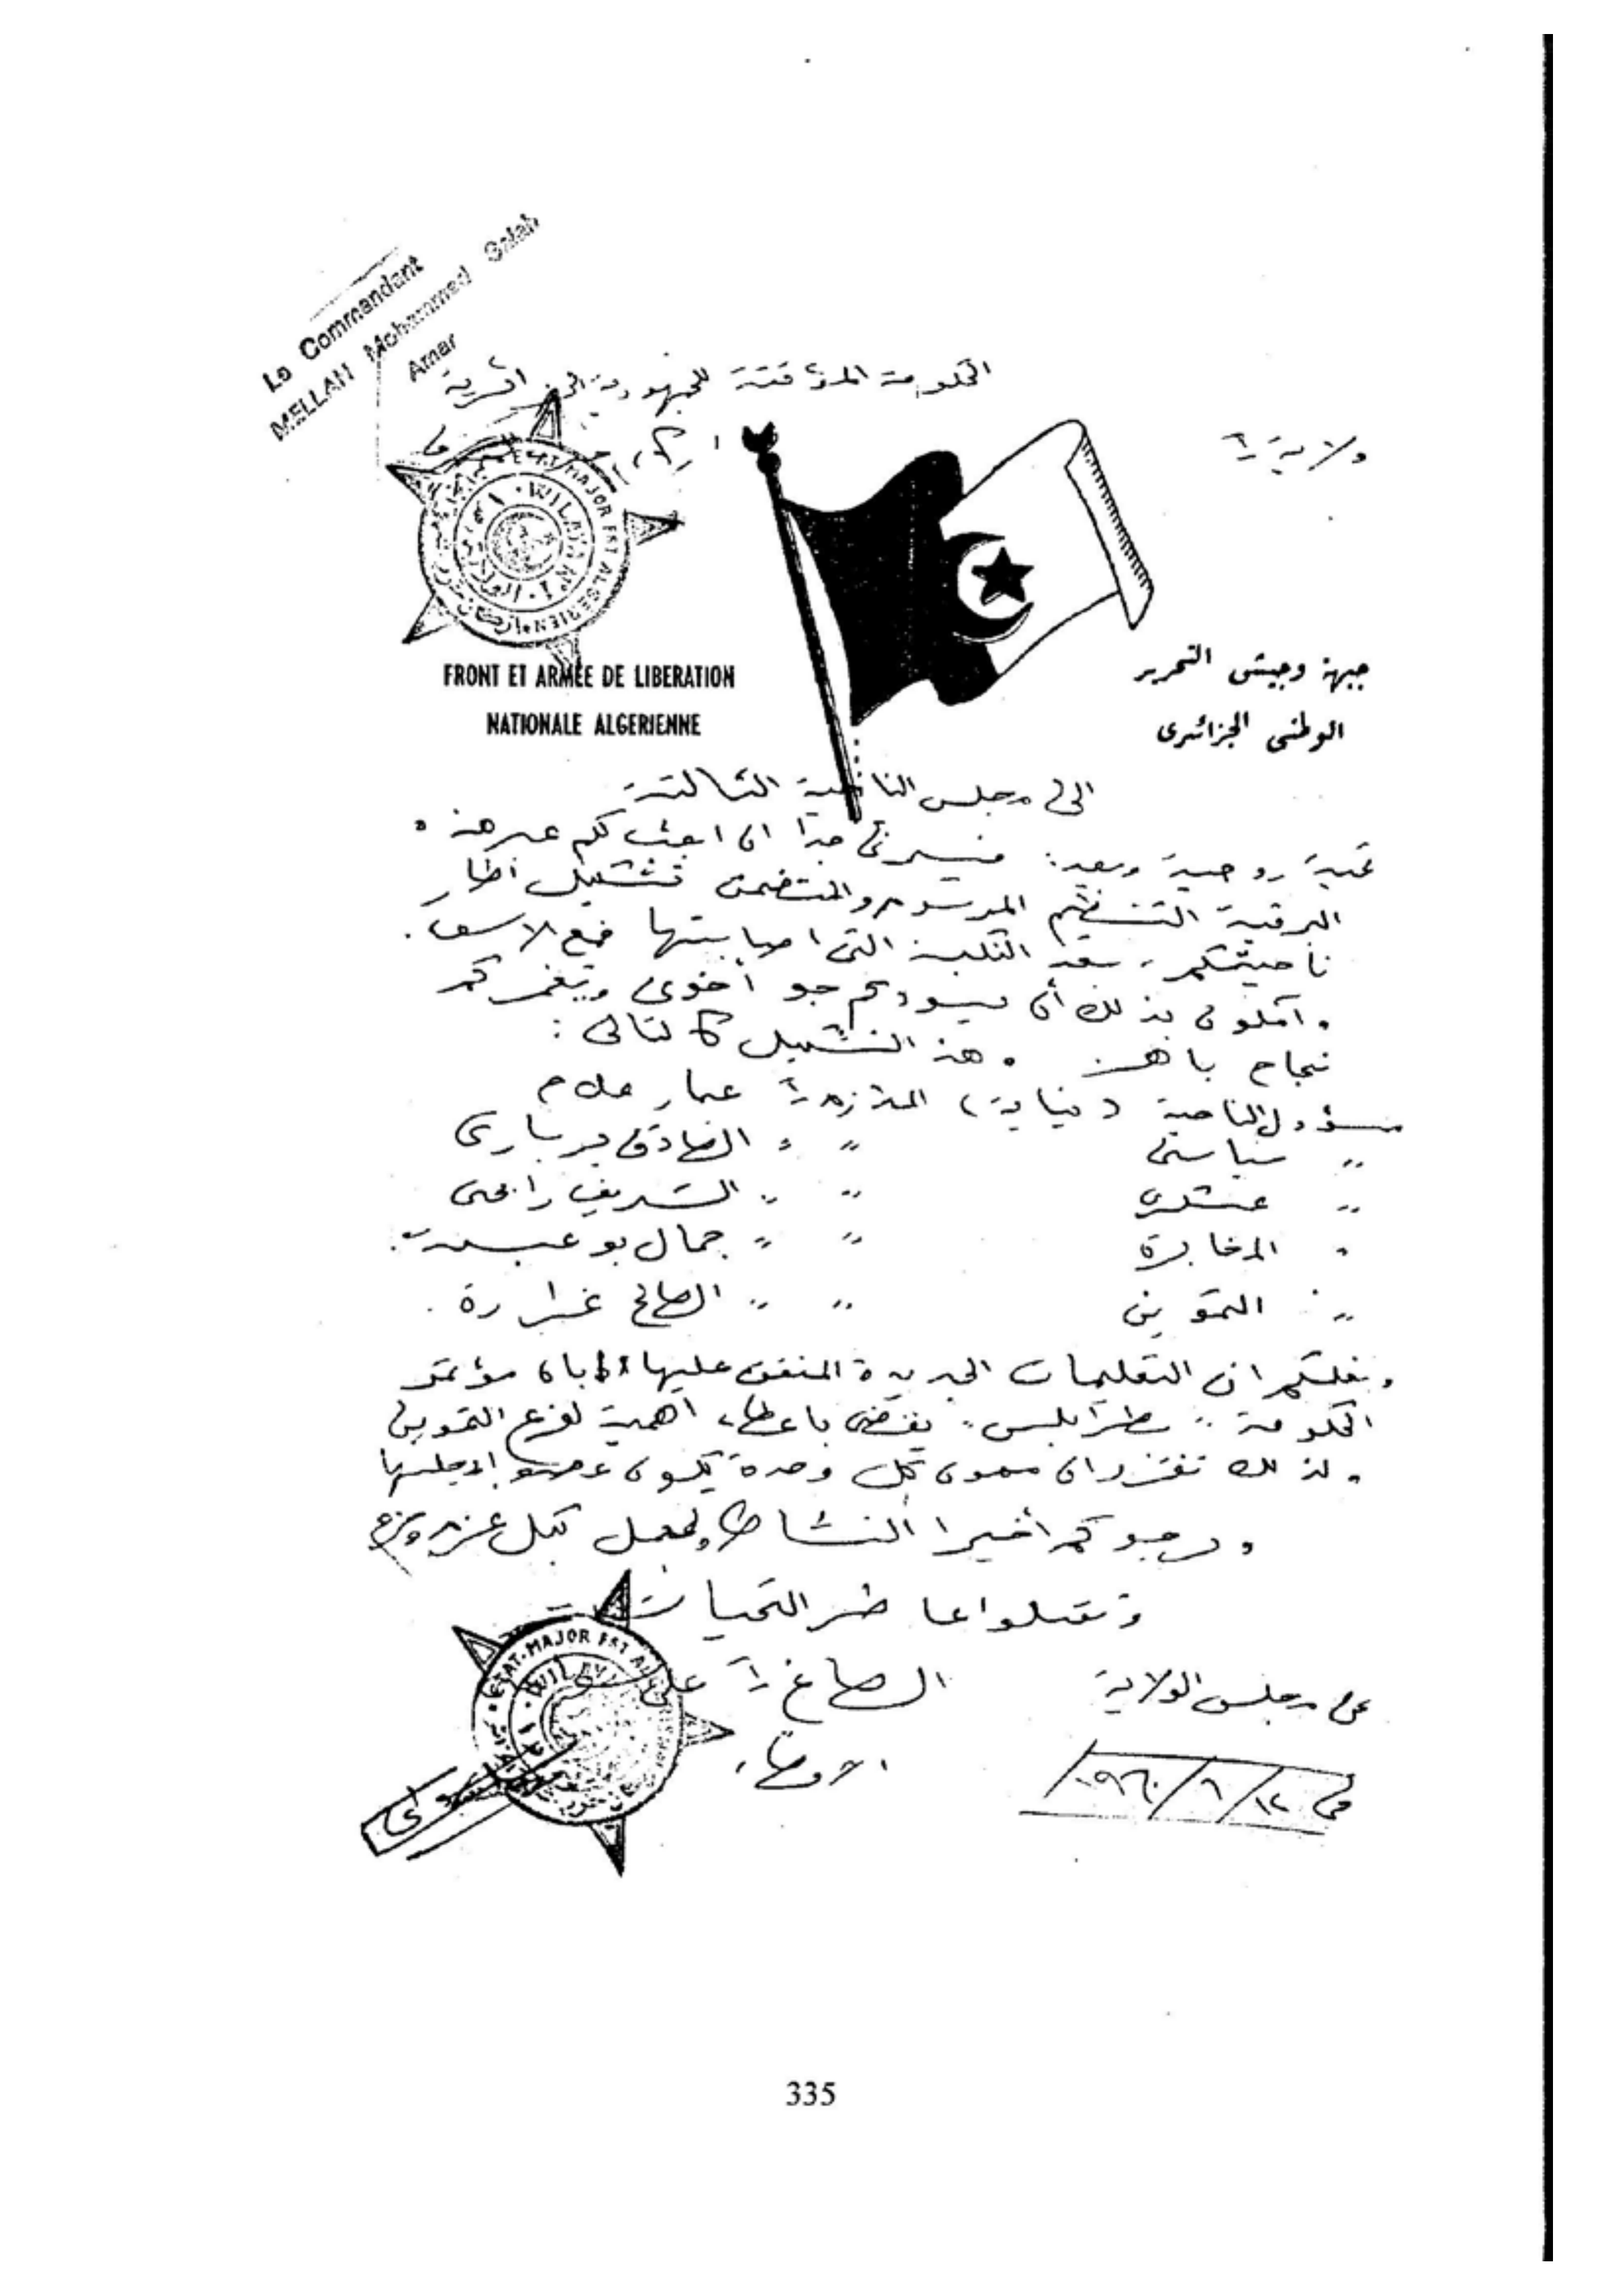 Le Commandant
MELLAH Mohammed Salah
Amar
الحكومة المؤقتة للجمهورية الجزائرية
ولاية ١
ETAT MAJOR EST ALGERIEN
WILAYA N° 1
FRONT ET ARMÉE DE LIBERATION
NATIONALE ALGERIENNE
جبهة وجيش التحرير
الوطني الجزائري
الى مجلس الناحية الثالثة
تحية روحية وبعد: فيسرني جدا ان ابعث لكم عبر هذه
البرقية التنظيم المرسوم والمتضمن تشكيل اطار
ناحيتكم، بعد النكبة التي اصابتها فمع الاسف.
وآملون بذلك أن يسودكم جو أخوي ويغمركم
نجاح باهر. وهذا التشكيل كالتالي:
مسؤول الناحية (نيابة) الملازم ١ عمار ملاح
" سياسي " " الصادق
" عسكري " " الشريف رابحي
" المخابرة " " جمال بو
" التموين " " الصالح غرارة.
ان التعليمات الجديدة المتفق عليها ابان مؤتمر
الحكومة " بطرابلس" يقتضي باعطاء اهمية لفرع التموين
ولذلك تقرر ان ممون كل وحدة يكون عضو لمجلسها
ونرجو لكم أخيرا النشاط والعمل بكل عزم وحزم
وتقبلوا عاطر التحيات
عن مجلس الولاية
الصاغ ١ علي
ETAT-MAJOR EST
WILAYA
في ١٢/٦/١٩٦٠
335